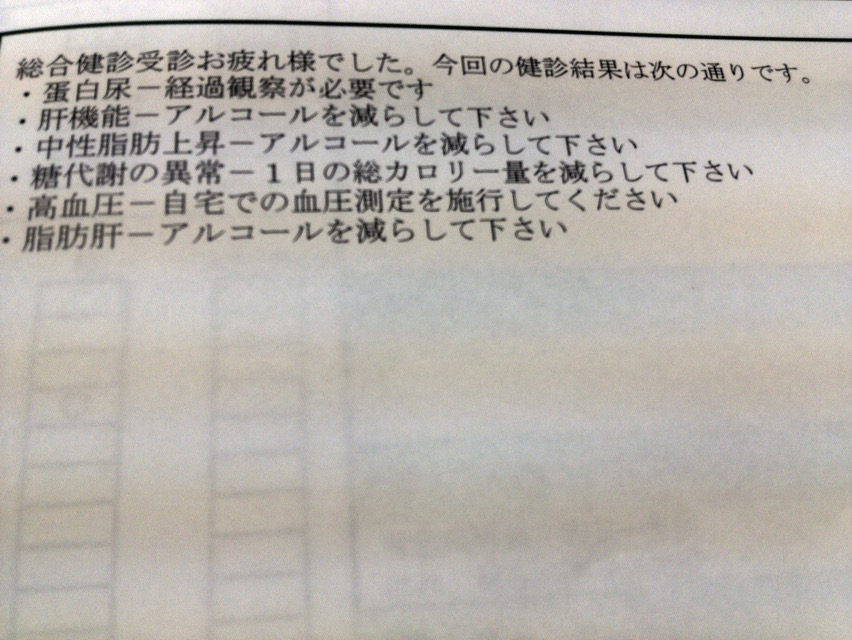 総合健診受診お疲れ様でした。今回の健診結果は次の通りです。
・蛋白尿－経過観察が必要です
・肝機能－アルコールを減らして下さい
・中性脂肪上昇－アルコールを減らして下さい
・糖代謝の異常－１日の総カロリー量を減らして下さい
・高血圧－自宅での血圧測定を施行してください
・脂肪肝－アルコールを減らして下さい